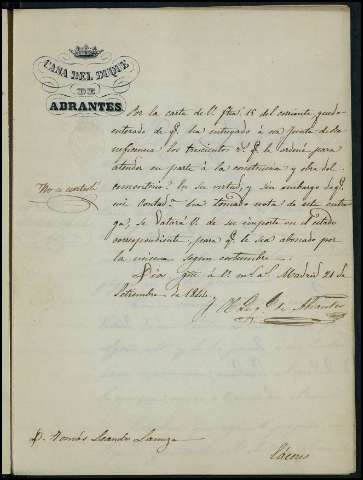 CASA DEL DUQUE
DE
ABRANTES.
Por la carta de V. fha. 15 del corriente quedo
enterado de q.e ha entregado á esa Junta de Be-
neficencia los trecientos r.s q.e le ordené para
atender en parte á la construccion y obra del
cementerio. En su virtud, y sin embargo de q.e
mi Contad.a ha tomado nota de esta entre
ga, se datará V. de su importe en el estado
correspondiente, para q.e le sea abonado por
la misma segun costumbre.
Dios gue á V. m.s a.s Madrid 21 de
Setiembre de 1844.
El Duq.e de Abrantes
D. Tomás Leandro
Cáceres